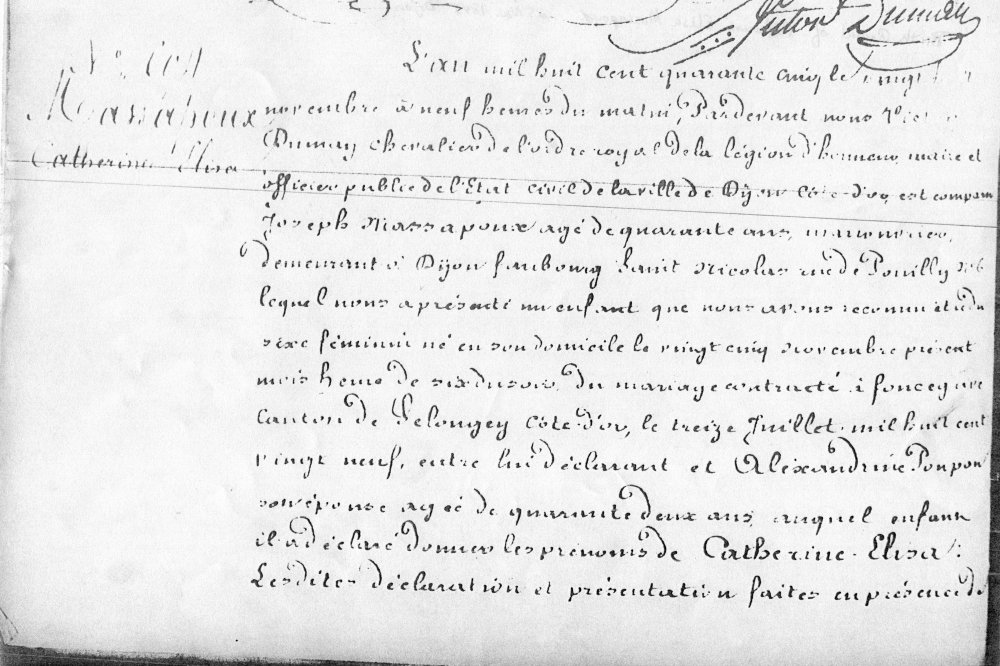 Dumay
Massapoux
Catherine Elisa
L'an mil huit cent quarante cinq le vingt
novembre à neuf heures du matin, Pardevant nous Victor
Dumay chevalier de l'ordre royal de la légion d'honneur, maire et
officier public de l'Etat civil de la ville de Dijon Côte-d'or, est comparu
Joseph Massapoux agé de quarante ans, manouvrier,
demeurant à Dijon faubourg Saint Nicolas rue de Pouilly N° 6
lequel nous a présenté un enfant que nous avons reconnu être du
sexe féminin né en son domicile le vingt cinq novembre présent
mois heure de six du soir, du mariage contracté à foncegrive
Canton de Selongey Côte-d'or, le treize Juillet mil huit cent
vingt neuf, entre lui déclarant et Alexandrine Ponpon
son épouse agée de quarante deux ans, auquel enfant
il a déclaré donner les prénoms de Catherine-Elisa.
Lesdites déclaration et présentation faites en présence de